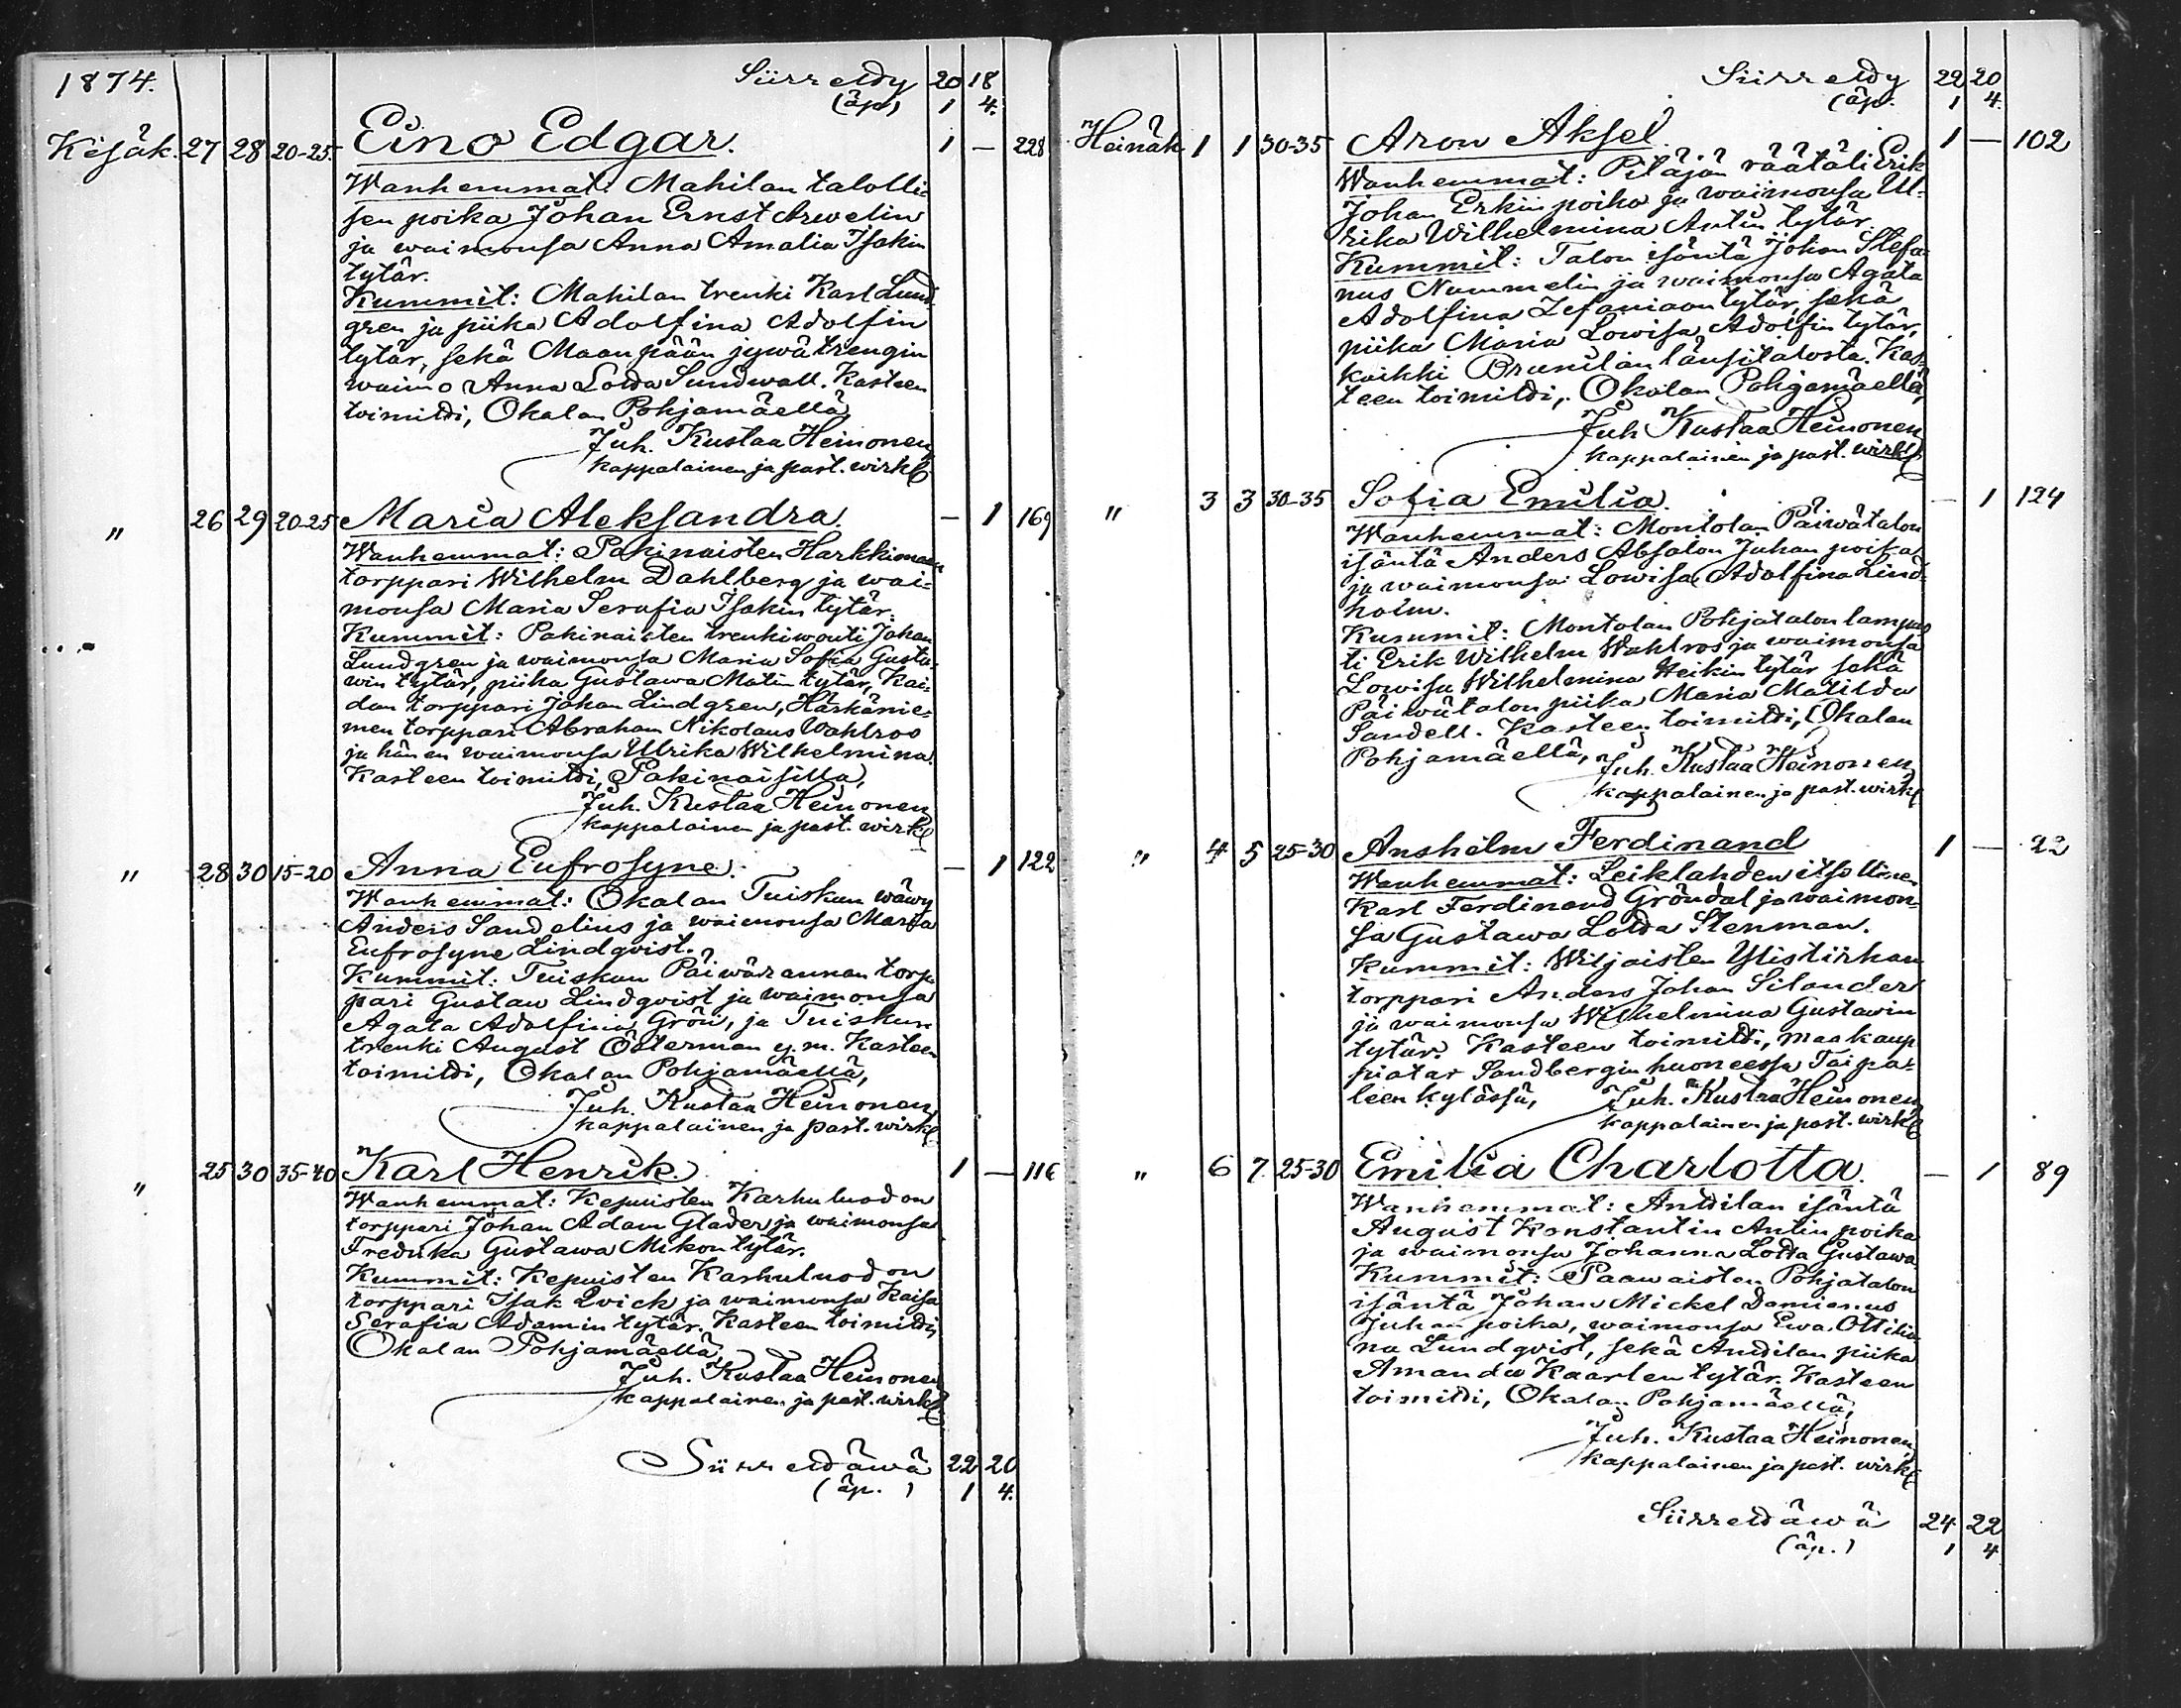 1874.
Siirreldy 20 18
(äp) 1 4.
Kesäk. 27 28 20-25. Eino Edgar. 1 — 228
Wanhemmat: Mahilan talolli-
sen poika Johan Ernst Arwelin
ja waimonsa Anna Amalia Isakin
tytär.
Kummit: Mahilan trenki Karl Lund-
gren ja piika Adolfina Adolfin
tytär, sekä Maanpään jywätrengin
waimo Anna Lowisa Sundwall. Kasteen
toimitti, Okalan Pohjamäellä,
Juh. Kustaa Heinonen
kappalainen ja past. wirk.
" 26 29 20-25 Maria Aleksandra. — 1 169
Wanhemmat: Pakinaisten Harkkimaan
torppari Wilhelm Dahlberg ja wai-
monsa Maria Serafia Isakin tytär.
Kummit: Pakinaisten trenkiwouti Johan
Lundgren ja waimonsa Maria Sofia Gusta-
win tytär, piika Gustawa Matin tytär, Kai-
dan torppari Johan Lindgren, Härkänie-
men torppari Abraham Nikolaus Wahlroos
ja hänen waimonsa Ulrika Wilhelmina.
Kasteen toimitti, Pakinaisilla,
Juh. Kustaa Heinonen
kappalainen ja past. wirk.
" 28 30 15-20 Anna Eufrosyne. — 1 122
Wanhemmat: Okalan Tuiskun wäwy
Anders Sandelius ja waimonsa Maria
Eufrosyne Lindqvist.
Kummit: Tuiskun Päiwärannan torp-
pari Gustaw Lindqvist ja waimonsa
Agata Adolfina Grön, ja Tuiskun
trenki August Österman y. m. Kasteen
toimitti, Okalan Pohjamäellä,
Juh. Kustaa Heinonen
kappalainen ja past. wirk.
" 25 30 35-40 Karl Henrik. 1 — 116
Wanhemmat: Kepuisten Karhuluodon
torppari Johan Adam Glader ja waimonsa
Fredrika Gustawa Mikon tytär.
Kummit: Kepuisten Karhuluodon
torppari Isak Qvick ja waimonsa Kaisa
Serafia Adamin tytär. Kasteen toimitti,
Okalan Pohjamäellä,
Juh. Kustaa Heinonen
kappalainen ja past. wirk.
Siirrettäwä 22 20
(äp.) 1 4.
Siirreldy 22 20
(äp. 1 4.
Heinäk 1 1 30-35 Aron Aksel. 1 — 102
Wanhemmat: Pitäjän räätäli Erik
Johan Erkin poika ja waimonsa Ul-
rika Wilhelmina Antin tytär.
Kummit: Talon isäntä Johan Stefa-
nus Nummelin ja waimonsa Agata
Adolfina Zefaniaan tytär, sekä
piika Maria Lowisa Adolfin tytär,
kaikki Brunilan länsitalosta. Kas-
teen toimitti, Okalan Pohjamäellä,
Juh Kustaa Heinonen
kappalainen ja past. wirk.
" 3 3 30-35 Sofia Emilia. — 1 124
Wanhemmat: Montolan Päiwätalon
isäntä Anders Absalon Juhan poika
ja waimonsa Lowisa Adolfina Lind-
holm.
Kummit: Montolan Pohjatalon lampuo
ti Erik Wilhelm Wahlros ja waimonsa
Lowisa Wilhelmina Heikin tytär sekä
Päiwätalon piika Maria Matilda
Sandell. Kasteen toimitti, Okalan
Pohjamäellä, Juh. Kustaa Heinonen
kappalainen ja past. wirk.
" 4 5 25-30 Anshelm Ferdinand 1 — 22
Wanhemmat: Leiklahden itsellinen
Karl Ferdinand Gröndal ja waimon-
sa Gustawa Lotta Stenman.
Kummit: Wiljaisten Ylistiirhan
torppari Anders Johan Silander
ja waimonsa Wilhelmina Gustawin
tytär. Kasteen toimitti, maakaup
piatar Sandbergin huoneessa Taipa-
leen kylässä, Juh. Kustaa Heinonen
kappalainen ja past. wirk.
" 6 7. 25-30 Emilia Charlotta. — 1 89
Wanhemmat: Anttilan isäntä
August Konstantin Antin poika
ja waimonsa Johanna Lotta Gustawa
Kummit: Paawaisten Pohjatalon
isäntä Johan Mickel Damianus
Juhan poika, waimonsa Ewa Ottilia
na Lundqvist, sekä Anttilan piika
Amanda Kaarlen tytär. Kasteen
toimitti, Okalan Pohjamäellä,
Juh. Kustaa Heinonen
kappalainen ja past. wirk.
Siirrettäwä 24 22
(äp.) 1 4